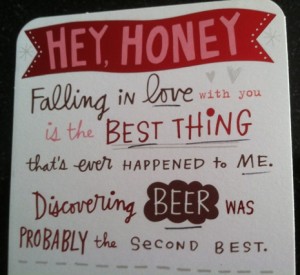 HEY, HONEY
Falling in love with you
is the BEST THING
that's ever HAPPENED to ME.
Discovering BEER WAS
PROBABLY the SECOND BEST.